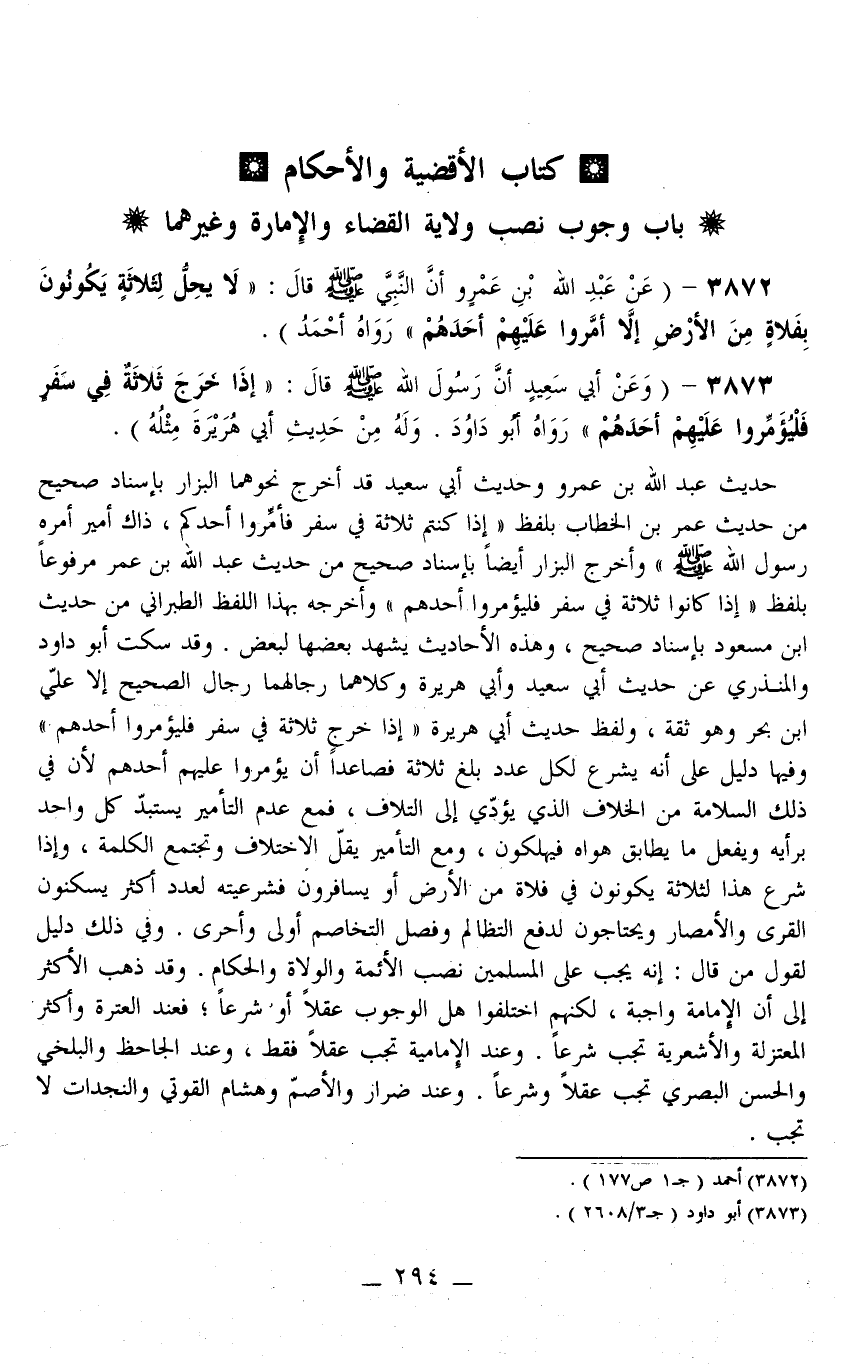 كتاب الأقضية والأحكام
باب وجوب نصب ولاية القضاء والإمارة وغيرهما
٣٨٧٢ – ( عَنْ عَبْدِ الله بْنِ عَمْرٍو أنَّ النَّبِيَّ ﷺ قالَ : « لَا يحِلُّ لِثَلاثَةٍ يَكُونُونَ
بِفَلاةٍ مِنَ الأرْضِ إلَّا أمَّروا عَلَيْهِمْ أحَدَهُمْ » رَوَاهُ أحْمَدُ ) .
٣٨٧٣ – ( وَعَنْ أبي سَعِيدٍ أنَّ رَسُولَ الله ﷺ قالَ : « إذَا خَرَجَ ثَلاثَةٌ فِي سَفَرٍ
فَلْيُؤَمِّروا عَلَيْهِمْ أحَدَهُمْ » رَوَاهُ أبُو دَاوُدَ . وَلَهُ مِنْ حَدِيثِ أبي هُرَيْرَةَ مِثْلُهُ ) .
حديث عبد الله بن عمرو وحديث أبي سعيد قد أخرج نحوهما البزار بإسناد صحيح
من حديث عمر بن الخطاب بلفظ « إذا كنتم ثلاثة في سفر فأمِّروا أحدكم ، ذاك أمير أمره
رسول الله ﷺ » وأخرج البزار أيضاً بإسناد صحيح من حديث عبد الله بن عمر مرفوعاً
بلفظ « إذا كانوا ثلاثة في سفر فليؤمروا أحدهم » وأخرجه بهذا اللفظ الطبراني من حديث
ابن مسعود بإسناد صحيح ، وهذه الأحاديث يشهد بعضها لبعض . وقد سكت أبو داود
والمنذري عن حديث أبي سعيد وأبي هريرة وكلاهما رجالهما رجال الصحيح إلا عليّ
ابن بحر وهو ثقة ، ولفظ حديث أبي هريرة « إذا خرج ثلاثة في سفر فليؤمروا أحدهم »
وفيها دليل على أنه يشرع لكل عدد بلغ ثلاثة فصاعداً أن يؤمروا عليهم أحدهم لأن في
ذلك السلامة من الخلاف الذي يؤدّي إلى التلاف ، فمع عدم التأمير يستبدّ كل واحد
برأيه ويفعل ما يطابق هواه فيهلكون ، ومع التأمير يقلّ الاختلاف وتجتمع الكلمة ، وإذا
شرع هذا لثلاثة يكونون في فلاة من الأرض أو يسافرون فشرعيته لعدد أكثر يسكنون
القرى والأمصار ويحتاجون لدفع التظالم وفصل التخاصم أولى وأحرى . وفي ذلك دليل
لقول من قال : إنه يجب على المسلمين نصب الأئمة والولاة والحكام . وقد ذهب الأكثر
إلى أن الإمامة واجبة ، لكنهم اختلفوا هل الوجوب عقلاً أو شرعاً ؛ فعند العترة وأكثر
المعتزلة والأشعرية تجب شرعاً . وعند الإمامية تجب عقلاً فقط ، وعند الجاحظ والبلخي
والحسن البصري تجب عقلاً وشرعاً . وعند ضرار والأصمّ وهشام القوتي والنجدات لا
تجب .
(٣٨٧٢) أحمد ( جـ١ ص١٧٧ ) .
(٣٨٧٣) أبو داود ( جـ٢٦٠٨/٣ ) .
_ ٢٩٤ _